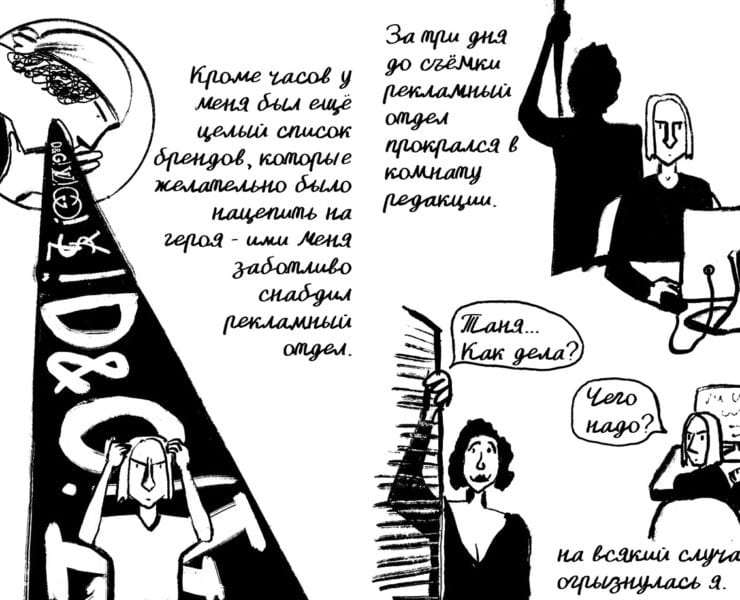 Кроме часов у
меня был ещё
целый список
брендов, которые
желательно было
нацепить на
героя - ими меня
заботливо
снабдил
рекламный
отдел.
D&G
D&G.
За три дня
до съёмки
рекламный
отдел
прокрался в
комнату
редакции.
Таня...
Как дела?
Чего
надо?
на всякий случа
огрызнулась я.